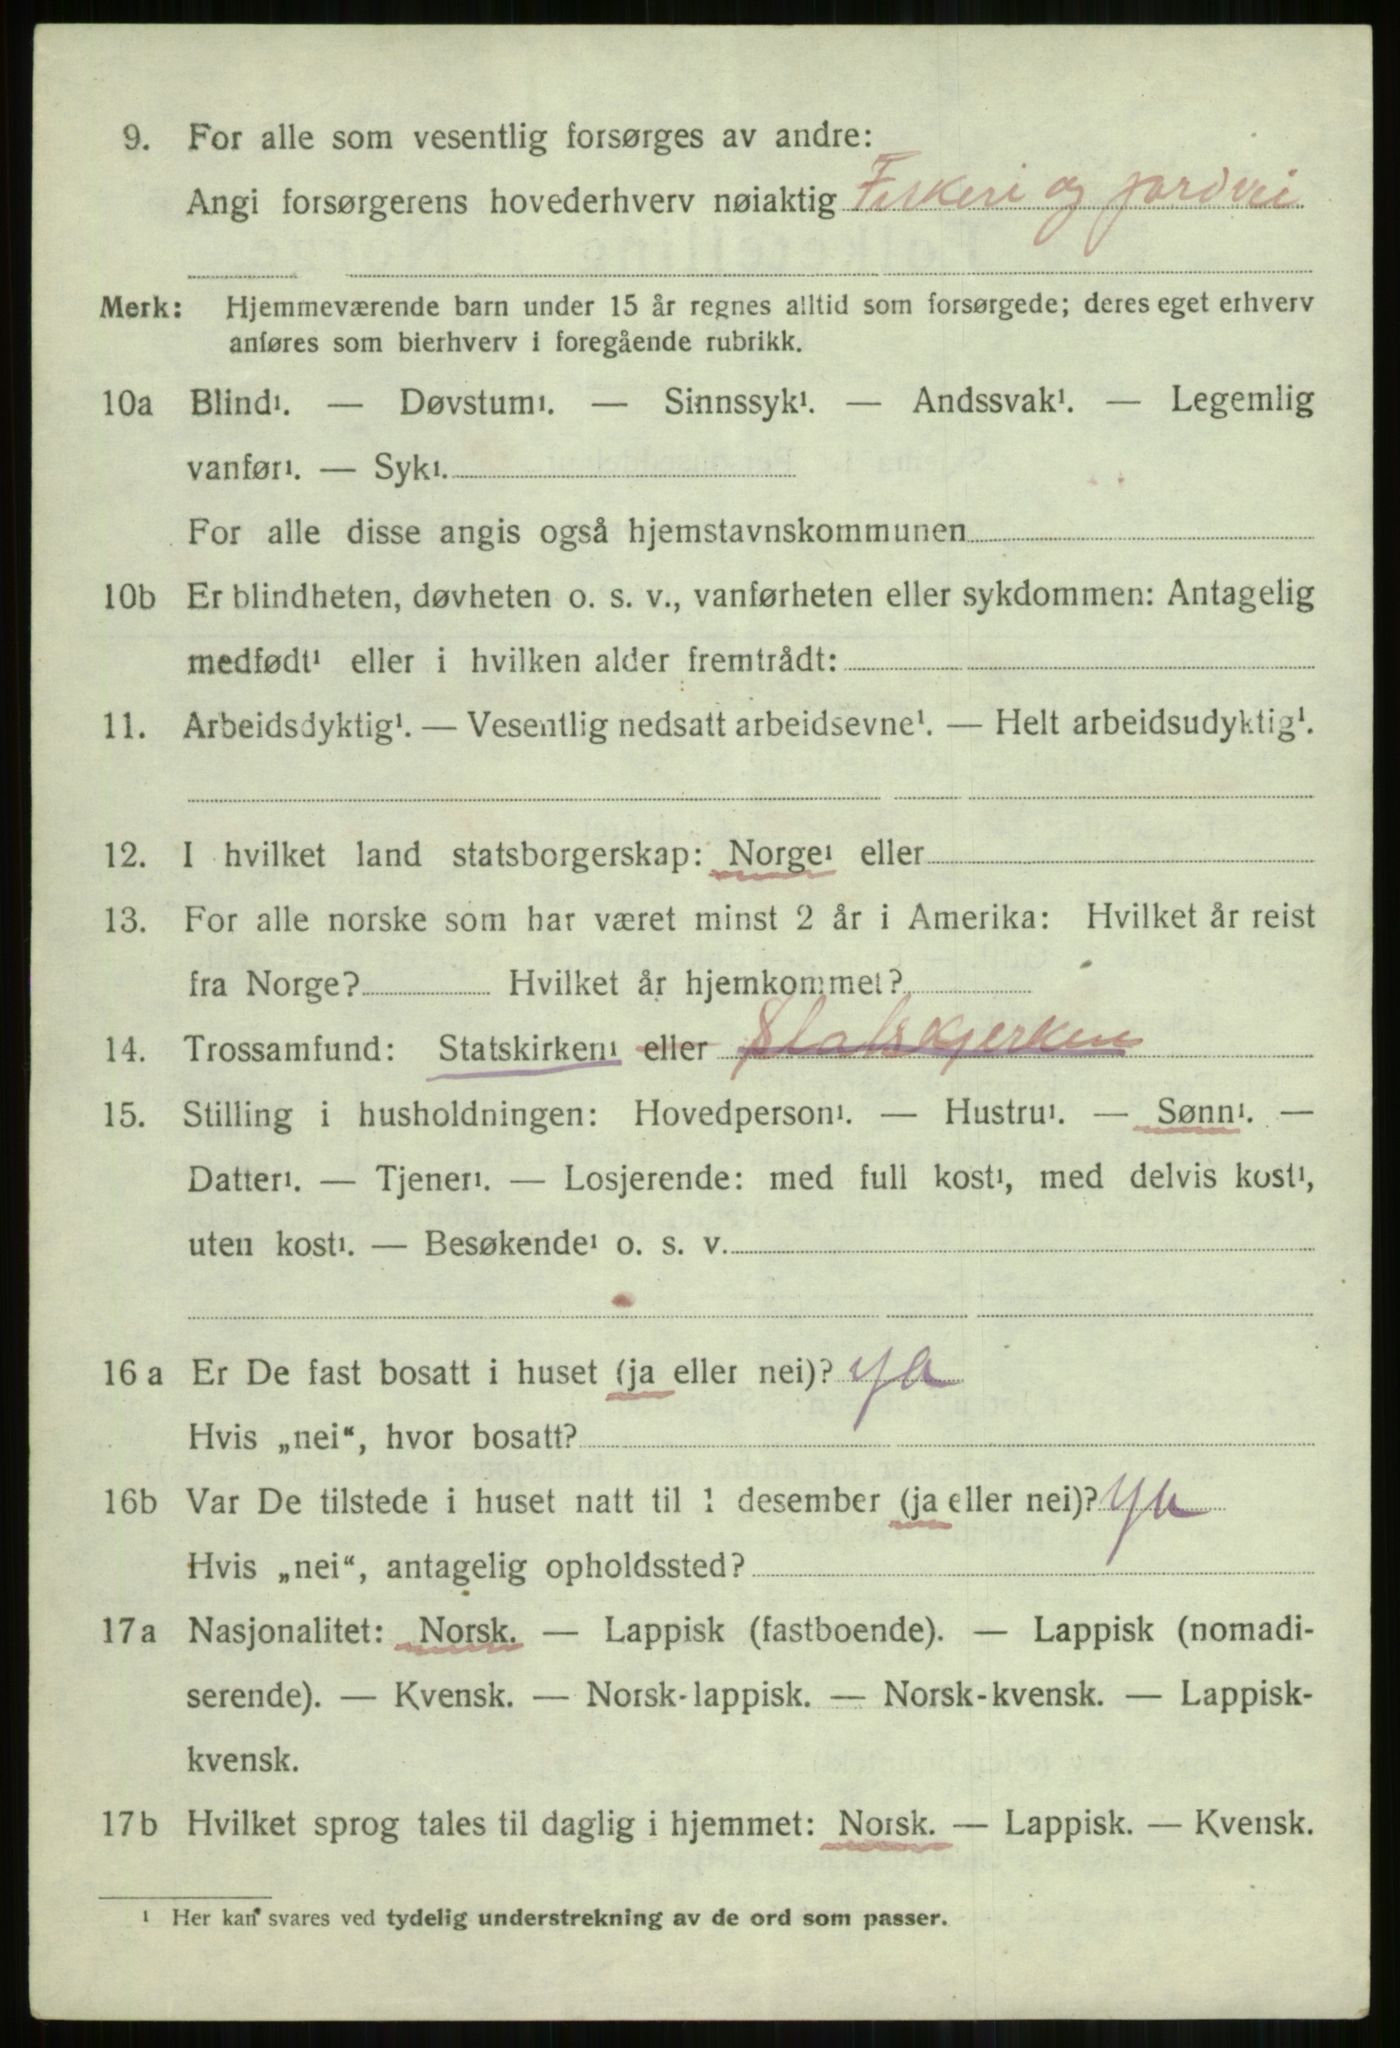 9. For alle som vesentlig forsørges av andre:
Angi forsørgerens hovederhverv nøiaktig Fiskeri og jordvei
Merk: Hjemmeværende barn under 15 år regnes alltid som forsørgede; deres eget erhverv
anføres som bierhverv i foregående rubrikk.
10a Blind¹. — Døvstum¹. — Sinnssyk¹. — Andssvak¹. — Legemlig
vanfør¹. — Syk¹.
For alle disse angis også hjemstavnskommunen
10b Er blindheten, døvheten o. s. v., vanførheten eller sykdommen: Antagelig
medfødt¹ eller i hvilken alder fremtrådt:
11. Arbeidsdyktig¹. — Vesentlig nedsatt arbeidsevne¹. — Helt arbeidsudyktig¹.
12. I hvilket land statsborgerskap: Norge¹ eller
13. For alle norske som har været minst 2 år i Amerika: Hvilket år reist
fra Norge? Hvilket år hjemkommet?
14. Trossamfund: Statskirken¹ eller Statskjerken
15. Stilling i husholdningen: Hovedperson¹. — Hustru¹. — Sønn¹. —
Datter¹. — Tjener¹. — Losjerende: med full kost¹, med delvis kost¹,
uten kost¹. — Besøkende¹ o. s. v.
16 a Er De fast bosatt i huset (ja eller nei)? ya
Hvis „nei“, hvor bosatt?
16b Var De tilstede i huset natt til 1 desember (ja eller nei)? ya
Hvis „nei“, antagelig opholdssted?
17a Nasjonalitet: Norsk. — Lappisk (fastboende). — Lappisk (nomadi-
serende). — Kvensk. — Norsk-lappisk. — Norsk-kvensk. — Lappisk-
kvensk.
17b Hvilket sprog tales til daglig i hjemmet: Norsk. — Lappisk. — Kvensk.
¹ Her kan svares ved tydelig understrekning av de ord som passer.